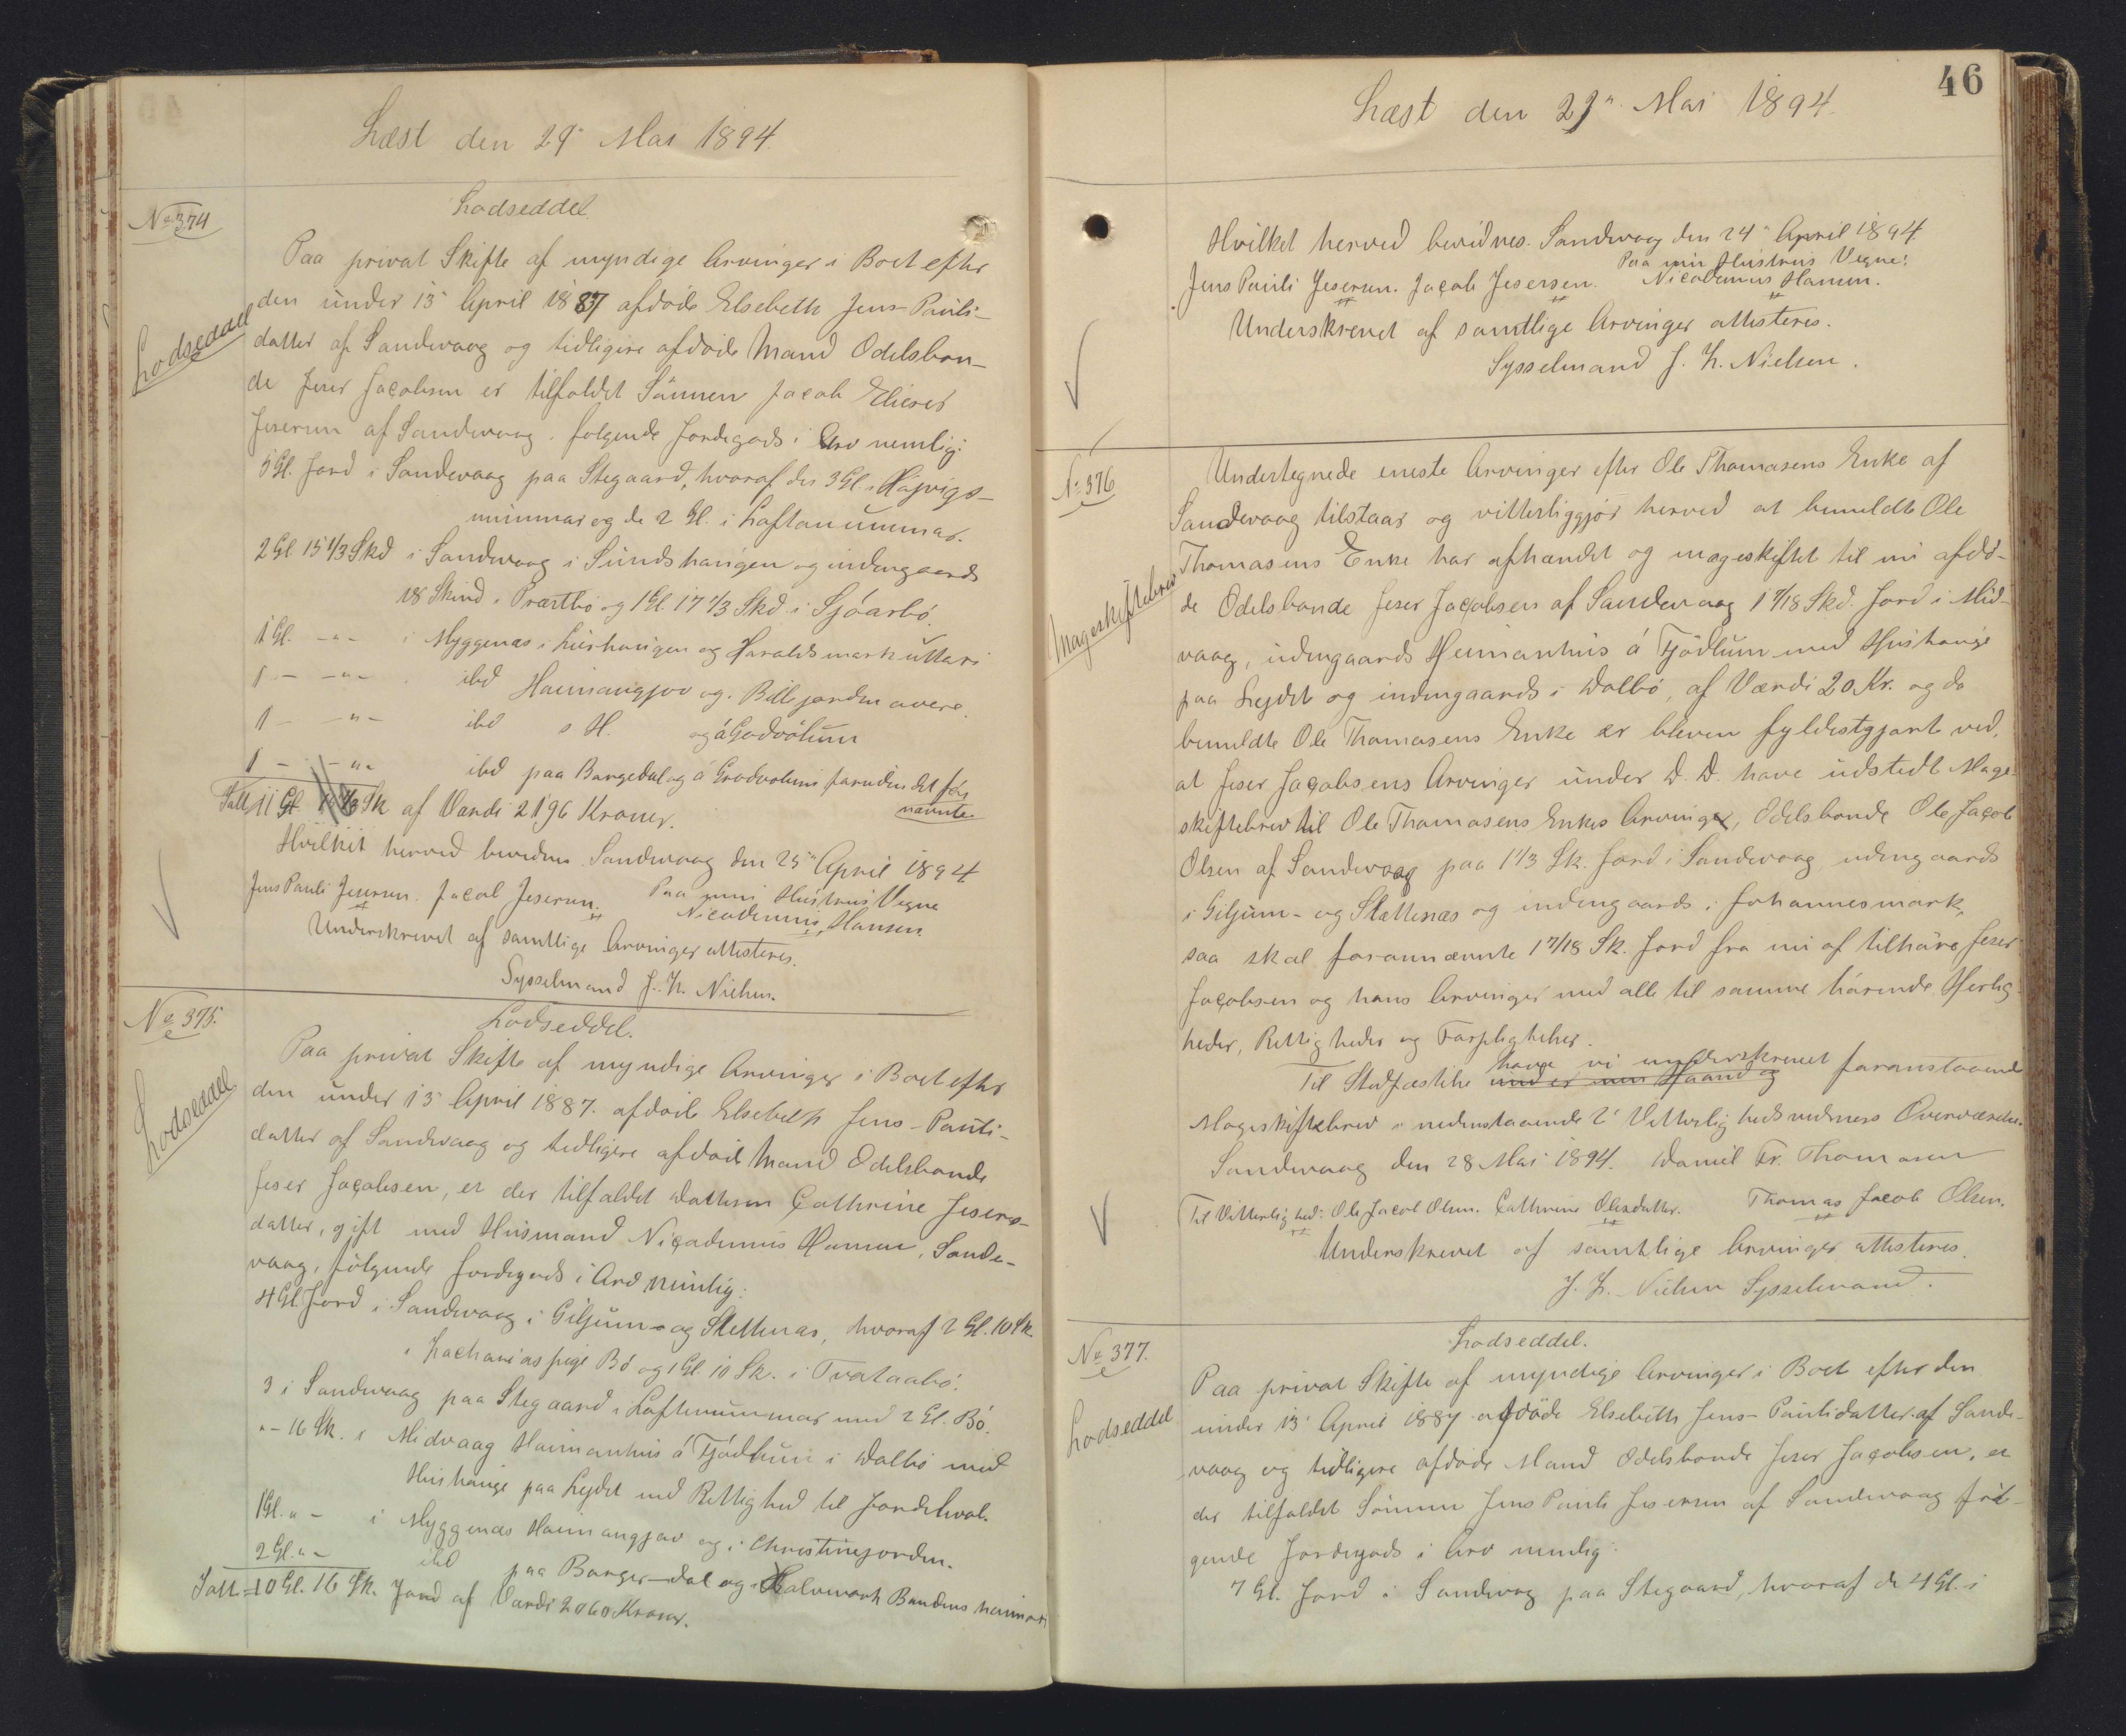 Læst den 29de Mai 1894.
Lodseddel.
No 374
Lodseddel
Paa privat Skifte af myndige Arvinger i Boet efter
den under 13 April 1887 afdøde Elsebeth Jens-Pauli-
datter af Sandevaag og tidligere afdøde Mand Odelsbon-
de Jeser Jacobsen er tilfaldet Sønnen Jacob Elieser
Jesersen af Sandevaag, følgende Jordegods i Arv nemlig:
5 Gl. Jord i Sandevaag paa Stegaard, hvoraf de 3 Gl. i
nummar og de 2 Gl. i Loftanummar.
2 Gl. 15 1/3 Skd i Sandevaag i Sundshaugen og indengaards
18 Skind i Præstbø og 1 Gl 17 1/3 Skd. i Sjóarbø.
1 Gl. -"- i Myggenæs i Lürhaugen og Haraldsmark uttari
1 - -"- ibd Haimangjov og Billejorden avere.
1 - -"- ibd s H. og á Godvølum
1 - -"- ibd paa Bargedal og á Grodvolum foruden det før
nævnte
Ialt 11 Gl. 13 1/3 Sk af Værdi 2196 Kroner.
Hvilket herved bevidnes Sandevaag den 25de April 1894
Jens Pauli Jesersen. Jacob Jesersen. Paa min Hustrus Vegne
Nicodemus Hansen.
Underskrevet af samtlige Arvinger attesteres.
Sysselmand J. H. Nielsen.
No 375.
Lodseddel.
Lodseddel
Paa privat Skifte af myndige Arvinger i Boet efter
den under 13 April 1887. afdøde Elsebeth Jens-Pauli-
datter af Sandevaag og tidligere afdøde Mand Odelsbonde
Jeser Jacobsen, er der tilfaldet Datteren Cathrine Jesers-
datter, gift med Husmand Nicodemus Hansen, Sande-
vaag, følgende Jordegods i Arv nemlig:
4 Gl. Jord i Sandevaag i Giljum- og Slettenæs, hvoraf 2 Gl. 10 Sk.
i Zachariasheige Bø og 1 Gl. 10 Sk. i Tvataabø.
3 i Sandevaag paa Stegaard i Loftenummar med 2 Gl. Bø.
"- 16 Sk. i Midvaag Haimanhús á Tjødlum i Dalbø med
Hushauge paa Lejdet med Rettighed til
1 Gl. " - i Myggenæs Haimangjov og i Christinejorden.
2 Gl. " - ibd paa Barger-dal og i Halvmark Bandens haimari
Ialt = 10 Gl. 16 Sk. Jord af Værdi 2060 Kroner.
46
Læst den 29de Mai 1894.
Hvilket herved bevidnes. Sandevaag den 24de April 1894.
Paa min Hustrus Vegne:
Jens Pauli Jesersen. Jacob Jesersen. Nicodemus Hansen.
Underskrevet af samtlige Arvinger attesteres.
Sysselmand J. H. Nielsen.
No 376
Mageskiftebrev
Undertegnede eneste Arvinger efter Ole Thomasens Enke af
Sandevaag tilstaar og vitterliggjør herved at bemeldte Ole
Thomasens Enke har afhændet og mageskiftet til nu afdø-
de Odelsbonde Jeser Jacobsen af Sandevaag 1 7/18 Skd. Jord i Mid-
vaag, udengaards Heimanhús á Tjødlum med Hushauge
paa Lejdet og indengaards i Dalbø, af Værdi 20 Kr. og da
bemeldte Ole Thomasens Enke er bleven fyldestgjort ved,
at Jeser Jacobsens Arvinger under D. D. have udstedt Mage-
skiftebrev til Ole Thomasens Enkes Arvinger, Odelsbonde Ole Jacob
Olsen af Sandevaag paa 1 1/3 Sk. Jord i Sandevaag udengaards
i Giljum- og Slettenæs og indengaards i Johannesmark,
saa skal forannævnte 1 7/18 Sk. Jord fra nu af tilhøre Jeser
Jacobsen og hans Arvinger med alle til samme hørende Herlig-
heder, Rettigheder og Forpligtelser.
Til Stadfæstelse have vi underskrevet foranstaaende
under min Haand og
Mageskiftebrev i nedenstaaende 2 Vitterlighedsvidners Overværelse.
Sandevaag den 28 Mai 1894. Daniel Fr. Thomasen
Til Vitterlighed: Ole Jacob Olsen. Cathrine Olesdatter. Thomas Jacob Olsen.
Underskrevet af samtlige Arvinger attesteres.
J. H. Nielsen Sysselmand.
No 377.
Lodseddel.
Lodseddel
Paa privat Skifte af myndige Arvinger i Boet efter den
under 13 April 1887 afdøde Elsebeth Jens-Paulidatter af Sande-
vaag og tidligere afdøde Mand Odelsbonde Jeser Jacobsen, er
der tilfaldet Sønnen Jens Pauli Jesersen af Sandevaag føl-
gende Jordegods i Arv nemlig:
7 Gl. Jord i Sandevaag paa Stegaard, hvoraf de 4 Gl. i